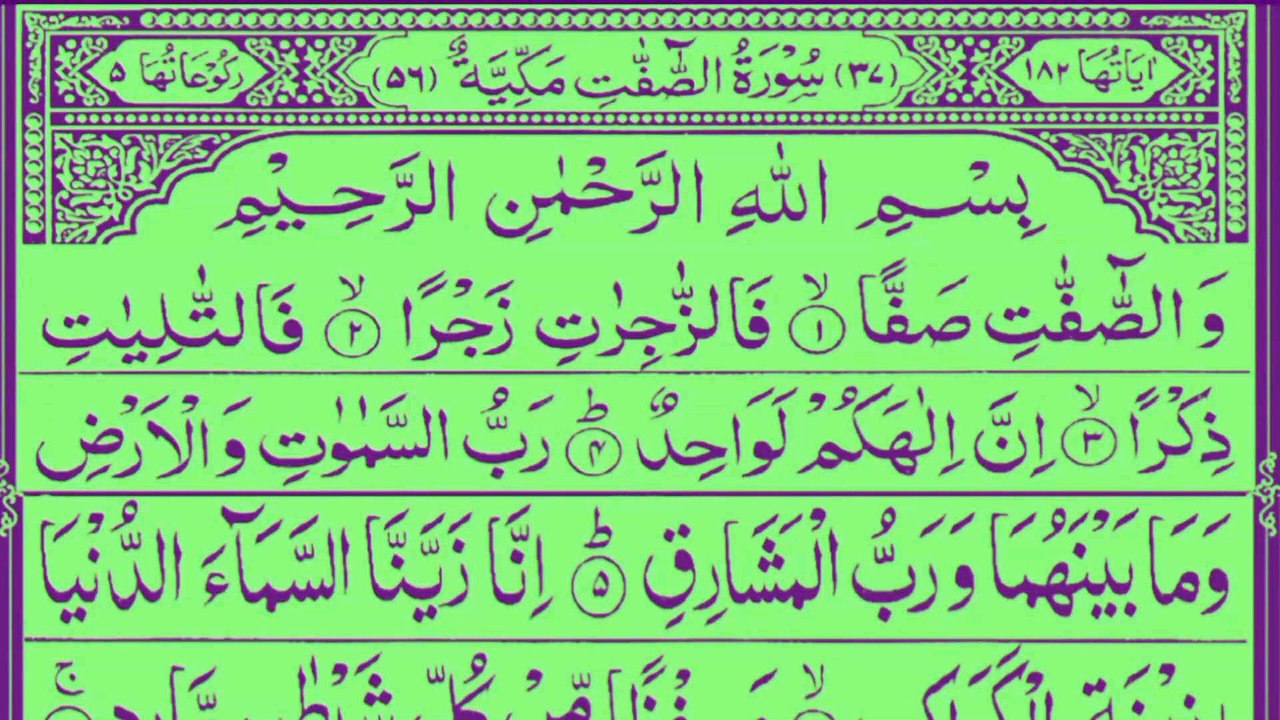 اٰيَاتُهَا ١٨٢ (٣٧) سُوْرَةُ الصّٰٓفّٰتِ مَكِّيَّةٌ (٥٦) رُكُوْعَاتُهَا ٥
بِسْمِ اللّٰهِ الرَّحْمٰنِ الرَّحِيْمِ
وَالصّٰٓفّٰتِ صَفًّا ۙ‏﴿۱﴾ فَالزّٰجِرٰتِ زَجْرًا ۙ‏﴿۲﴾ فَالتّٰلِيٰتِ
ذِكْرًا ۙ‏﴿۳﴾ اِنَّ اِلٰهَكُمْ لَوَاحِدٌ ؕ‏﴿۴﴾ رَبُّ السَّمٰوٰتِ وَالْاَرْضِ
وَمَا بَيْنَهُمَا وَرَبُّ الْمَشَارِقِ ؕ‏﴿۵﴾ اِنَّا زَيَّنَّا السَّمَآءَ الدُّنْيَا